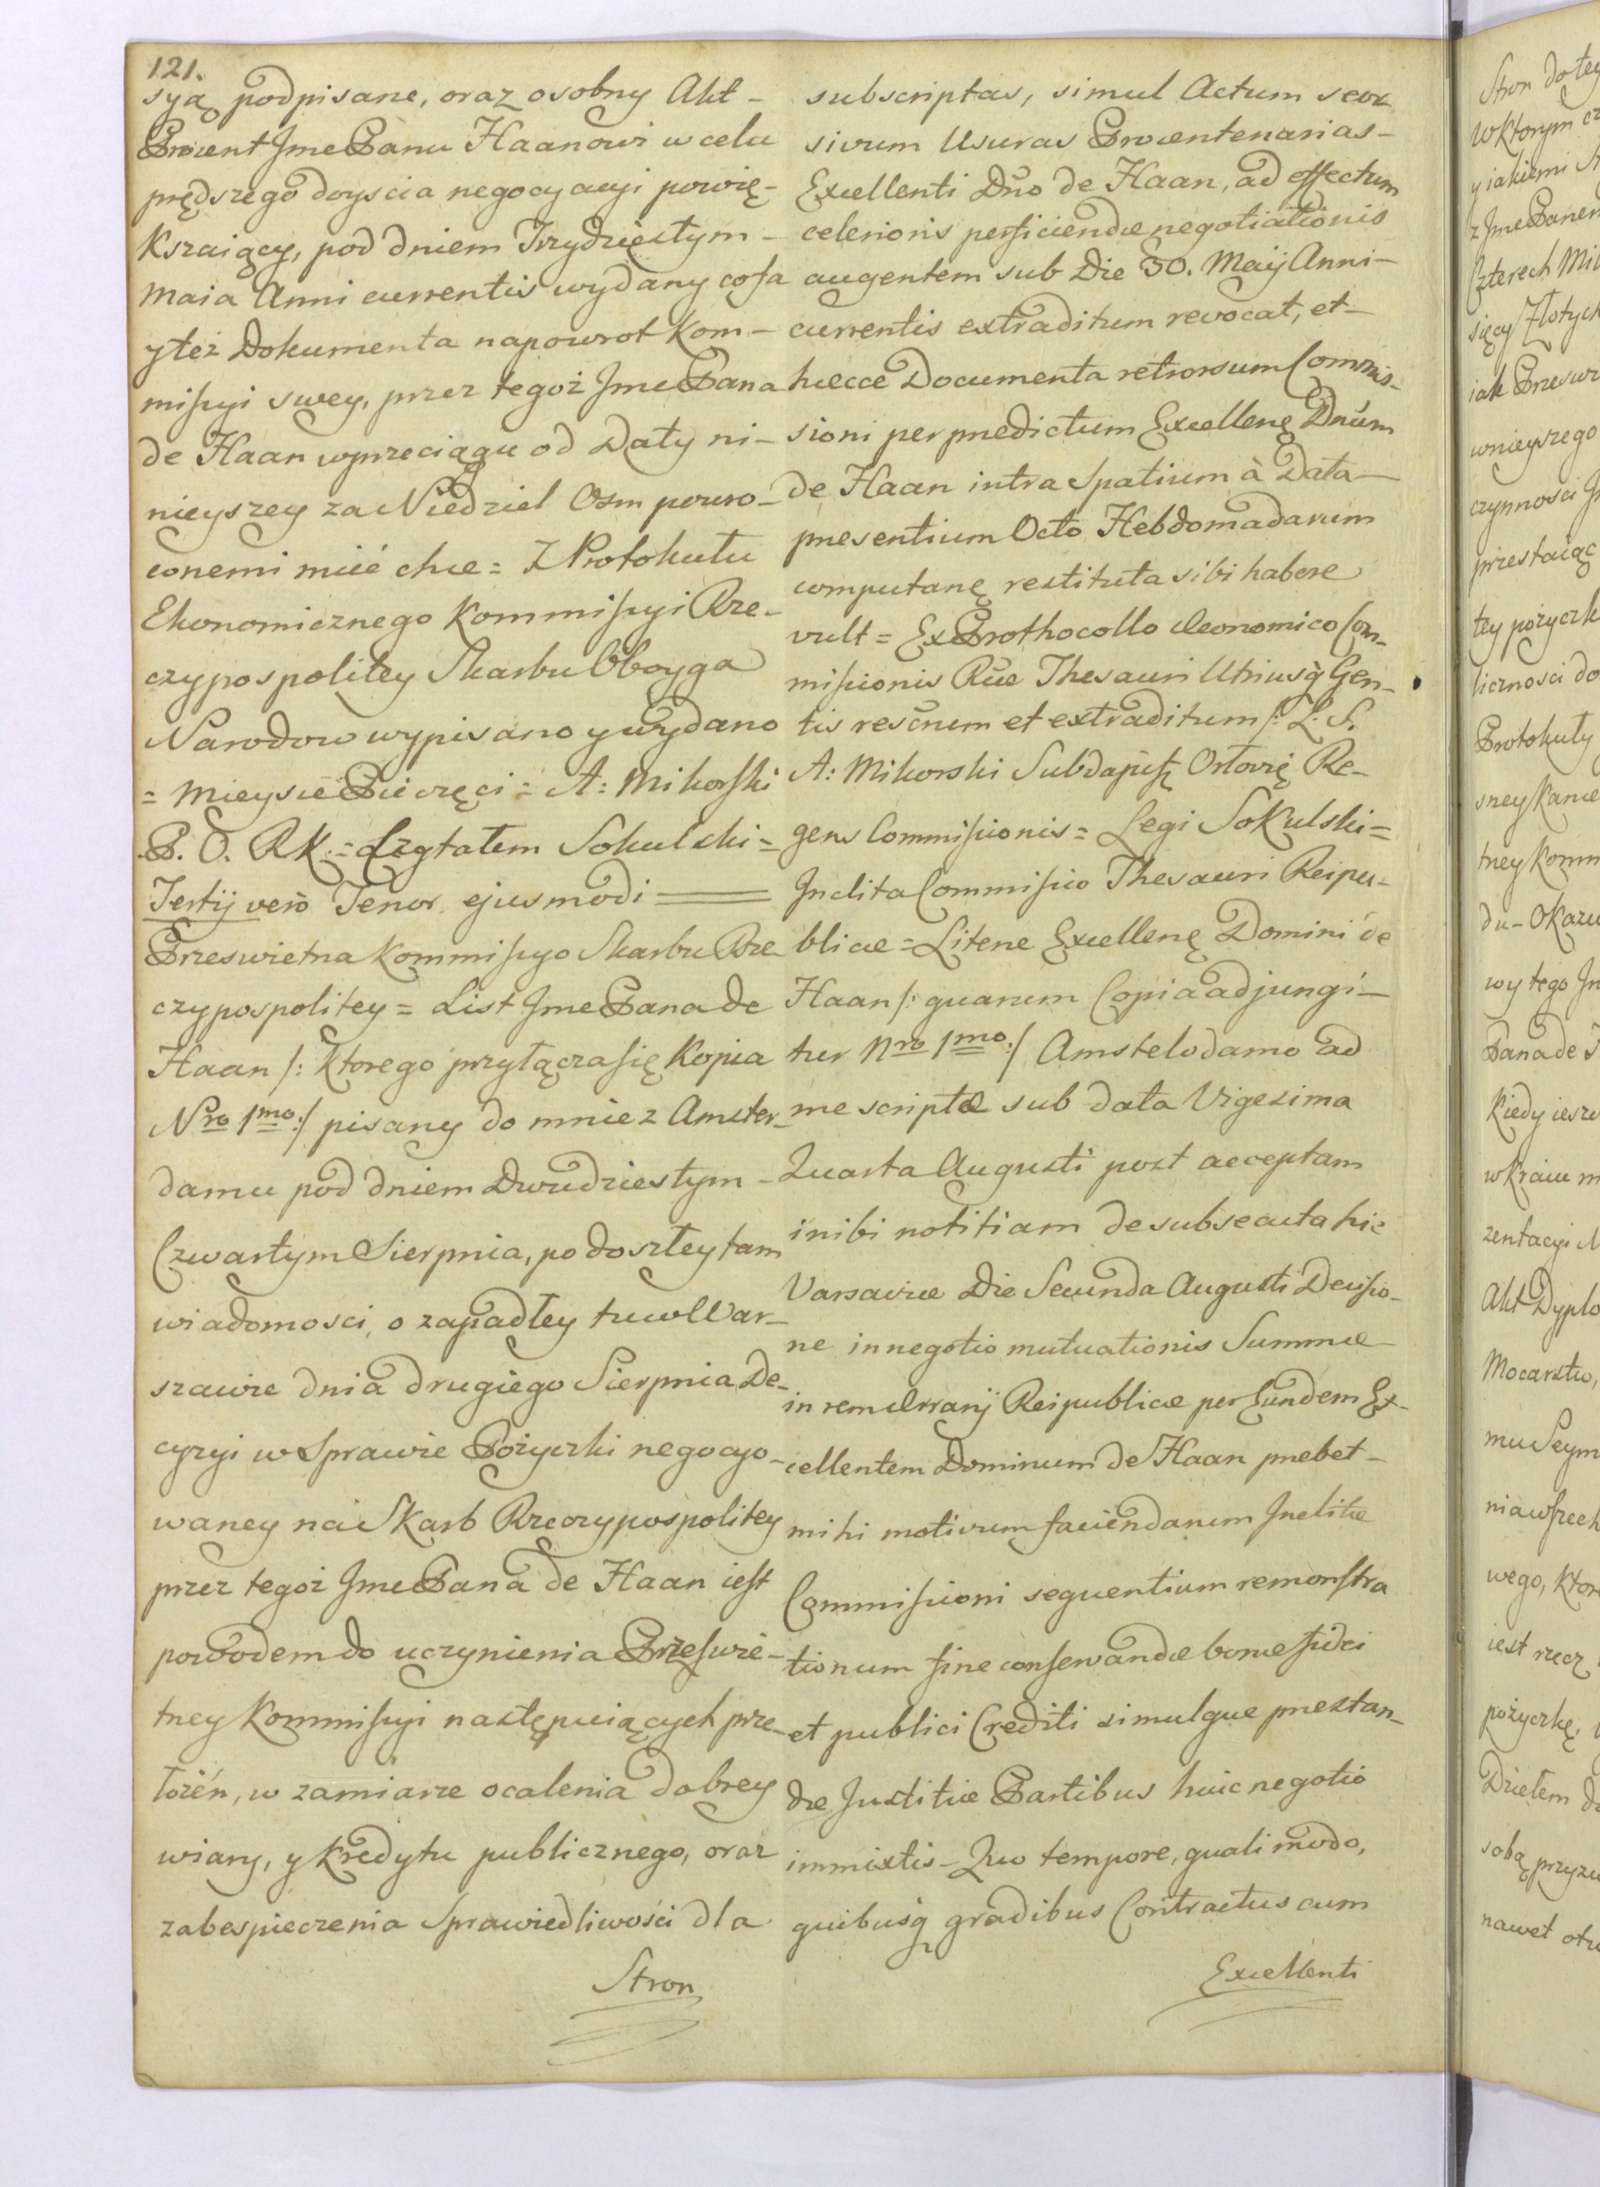 121.
syą podpisane, oraz osobny Akt -
Procent Jme Panu Haanowi w celu
prędszego doyscia negocyacyi powię-
kszaiący, pod dniem Trzydziestym -
Maia Anni currentis wydany cofa
y też Dokumenta napowrot Kom-
mißyi swey, przez tegoż Jme Pana
de Haan wprzeciągu od Daty ni-
nieyszey za Niedziel Osm powro-
conemi mieć chce = Z Protokułu
Ekonomicznego Kommißyi Rze-
czypospolitey Skarbu Oboyga
Narodow wypisano y wydano
= Mieysce Pieczęci = A: Mikorski
P. O. R K. = Czytałem Sokulski =
Tertij verò Tenor ejusmodi =
Przeswietna Kommißyo Skarbu Rze
czypospolitey = List Jme Pana de
Haan /: ktorego przyłącza się Kopia
Nro 1mo :/ pisany do mnie z Amster-
damu pod dniem Dwudziestym -
Czwartym Sierpnia, po doszłey tam
wiadomosci, o zapadłey tu w War-
szawie dnia drugiego Sierpnia De-
cyzyi w Sprawie Pożyczki negocyo-
waney na Skarb Rzeczypospolitey
przez tegoż Jme Pana de Haan iest
powodem do uczynienia Przeswie-
tney Kommißyi następuiących prze-
łożeń, w zamiarze ocalenia dobrey
wiary, y kredytu publicznego, oraz
zabespieczenia Sprawiedliwości dla
Stron
subscriptas, simul Actum seor
sivum Usuras Procentenarias -
Excellenti Dno de Haan, ad effectum
celerioris perficiendæ negotiationis
augentem sub Die 30. Maij Anni -
currentis extraditum revocat, et -
hæcce Documenta retrorsum Commis-
sioni per prædictum Excellenę Dnum
de Haan intra Spatium à Data -
præsentium Octo Hebdomadarum
computanę restituta sibi habere
vult = Ex Prothocollo Œconomico Com-
mißionis Rūæ Thesauri Utriusq Gen-
tis rescnum et extraditum /: L. S.
A: Mikorski Subdapifę Ostovię Re-
gens Commißionis = Legi Sokulski =
Inclita Commißio Thesauri Reipu-
blicæ = Literæ Excellenę Domini de
Haan /: quarum Copia adjungi-
tur Nro 1mo :/ Amstelodamo ad
me scriptæ sub data Vigesima
Quarta Augusti post acceptam
inibi notitiam de subsecuta hic
Varsaviæ Die Secunda Augusti Decisio-
ne in negotio mutuationis Summæ
in rem Ærarij Reipublicæ per Eundem Ex-
cellentem Dominum de Haan præbet -
mihi motivum faciendarum Inclitæ
Commißioni sequentium remonstra
tionum fine conservandæ bonæ fidei
et publici Crediti simulque præstan-
dæ Justitiæ Partibus huic negotio
immixtis - Quo tempore, quali modo,
quibusq gradibus Contractus cum
Excellenti
Stron do tey
w ktorym
y iakiemi
z Jme Panem
Czterech
sięcy Złotych
iak
wnieyszego
czynnosci
przestaiąc
tey pożyczk
liczności do
Protokuły
tney Komm
wy tego
Pana de
Kiedy ieszc
w Kraiu
zentacyi
Akt Dyplo
Mocarstw,
mu Seym
wego, ktor
iest rzecz
pożyczkę,
Dziełem
sobą
nawet